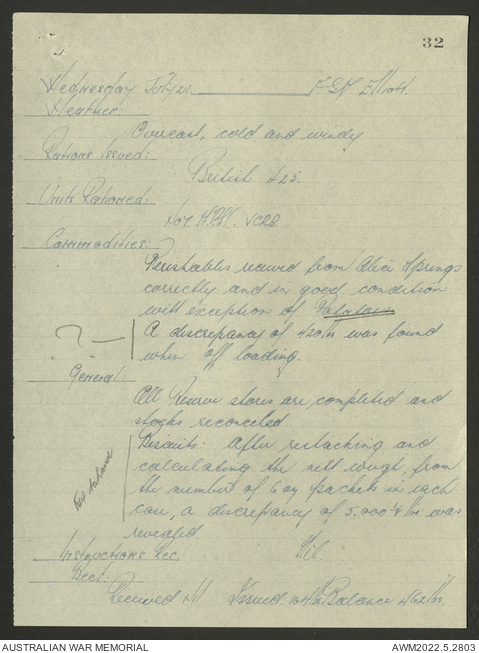 32
Wednesday July 21. F.S.M Elliott.
Weather:
Overcast, cold and windy
Rations Issued:
British 425.
Units Rationed:
No 7. VCRD.
Commodities:
Perishables received from Alice Springs
correctly and in good condition
with exception of Potatoes
? A discrepancy of 420 lbs was found
when off loading.
General:
All Reserve stores are completed and
stocks reconciled.
Biscuits: After restacking and
calculating the nett weight, from
the number of 6 oz packets in each
case, a discrepancy of 5.000 lbs was
revealed.
Instructions Rec. Nil.
Beef:
Received Nil Issued. Balance 462 lbs.
AUSTRALIAN WAR MEMORIAL
AWM2022.5.2803